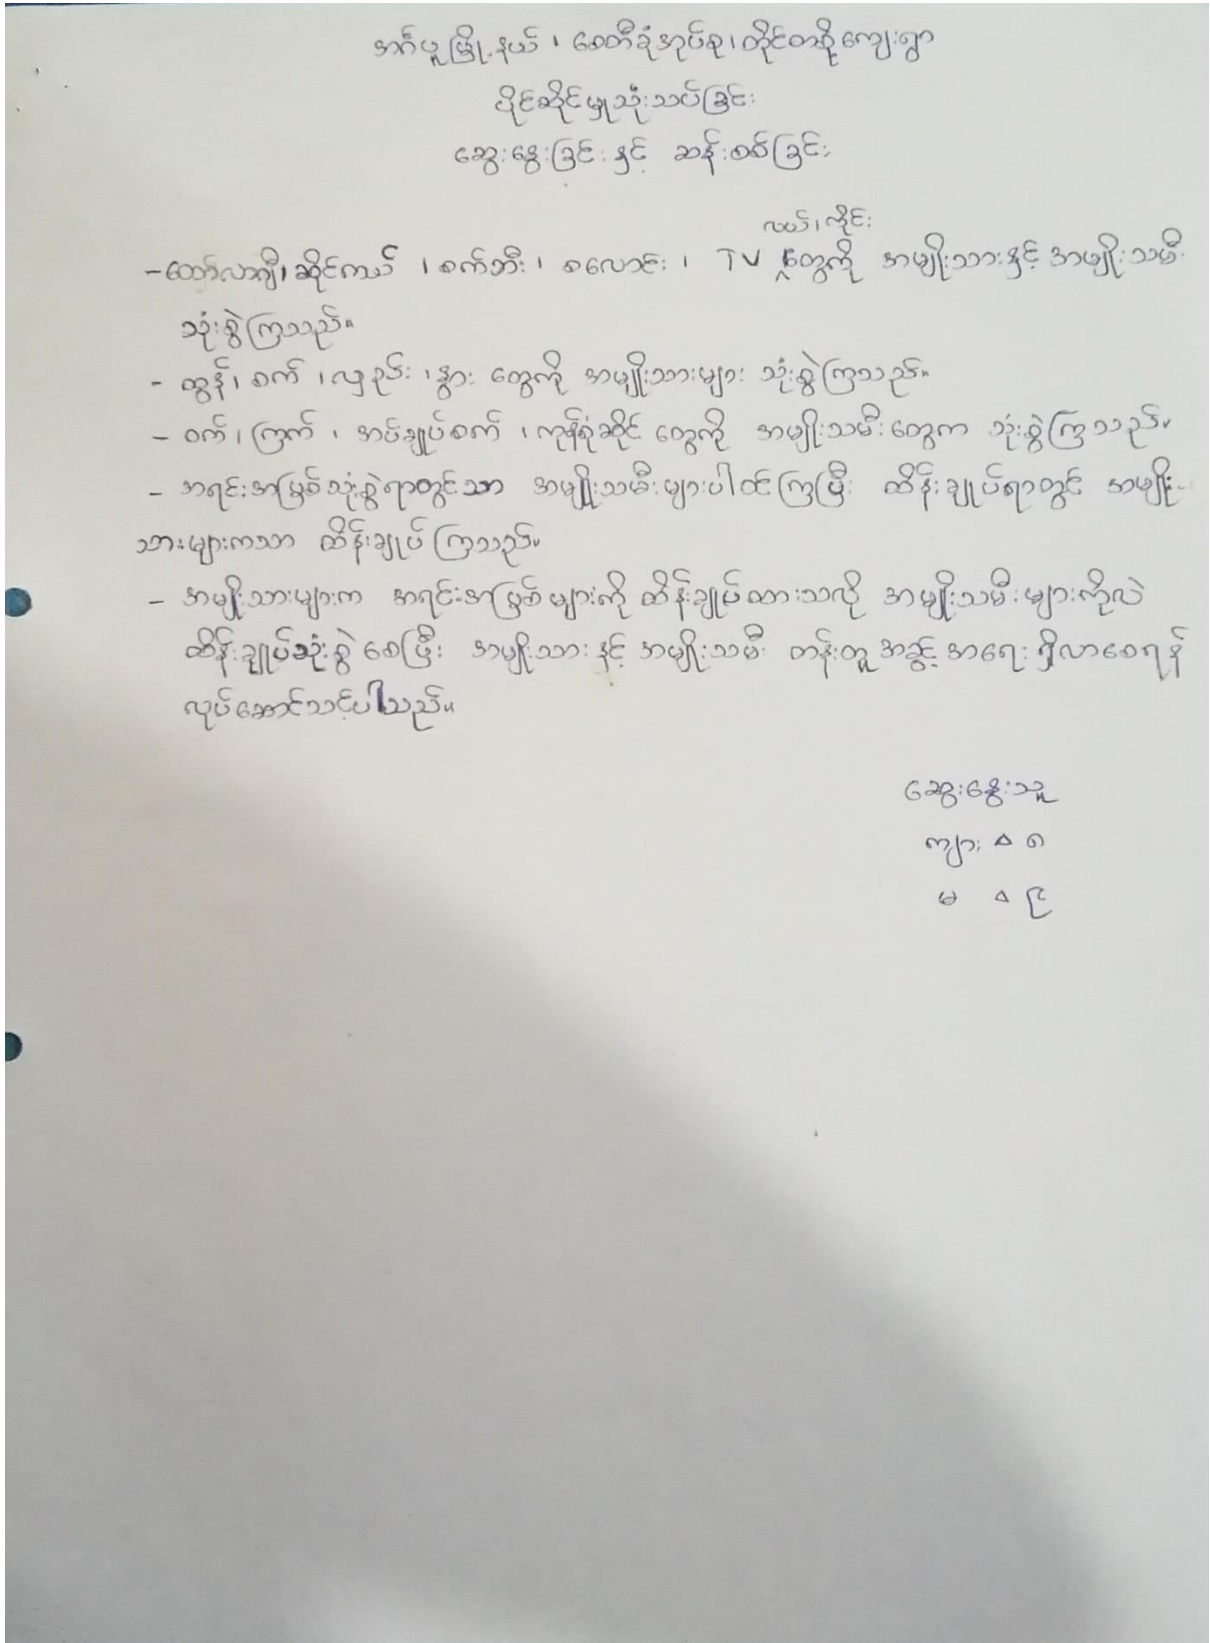 အင်္ဂပူမြို့နယ်၊ စေတီခုံအုပ်စု၊ တိုင်တစို့ကျေးရွာ
ပိုင်ဆိုင်မှုသုံးသပ်ခြင်း
ဆွေးနွေးခြင်းနှင့် ဆန်းစစ်ခြင်း
လယ်၊ ကိုင်း
- ထော်လာဂျီ၊ ဆိုင်ကယ် ၊ စက်ဘီး ၊ စလောင်း ၊ TV တွေကို အမျိုးသားနှင့် အမျိုးသမီး
သုံးစွဲကြသည်။
- ထွန်၊ စက် ၊ လှည်း ၊ နွား တွေကို အမျိုးသားများ သုံးစွဲကြသည်။
- ဝက်၊ ကြက် ၊ အပ်ချုပ်စက် ၊ ကုန်စုံဆိုင် တွေကို အမျိုးသမီးတွေက သုံးစွဲကြသည်။
- အရင်းအမြစ်သုံးစွဲရာတွင်သာ အမျိုးသမီးများပါဝင်ကြပြီး ထိန်းချုပ်ရာတွင် အမျိုး-
သားများကသာ ထိန်းချုပ်ကြသည်။
- အမျိုးသားများက အရင်းအမြစ်များကို ထိန်းချုပ်ထားသလို အမျိုးသမီးများကိုလဲ
ထိန်းချုပ်သုံးစွဲစေပြီး အမျိုးသားနှင့် အမျိုးသမီး တန်းတူအခွင့်အရေးရှိလာစေရန်
လုပ်ဆောင်သင့်ပါသည်။
ဆွေးနွေးသူ
ကျား ၁၈
မ ၁၉